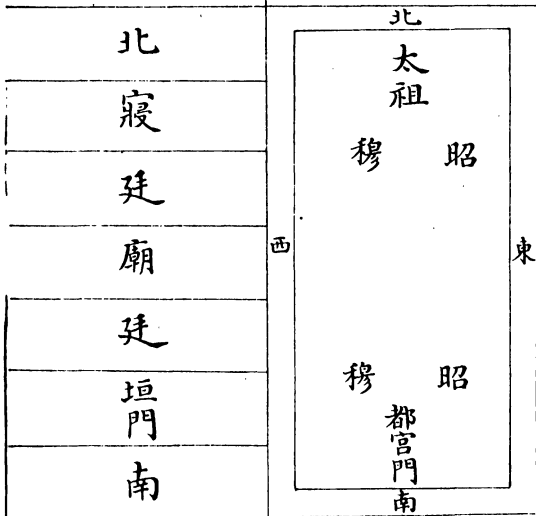 北
太祖
昭 穆
東
西
昭 穆
都宮門
南
北
寢
廷
廟
廷
垣門
南